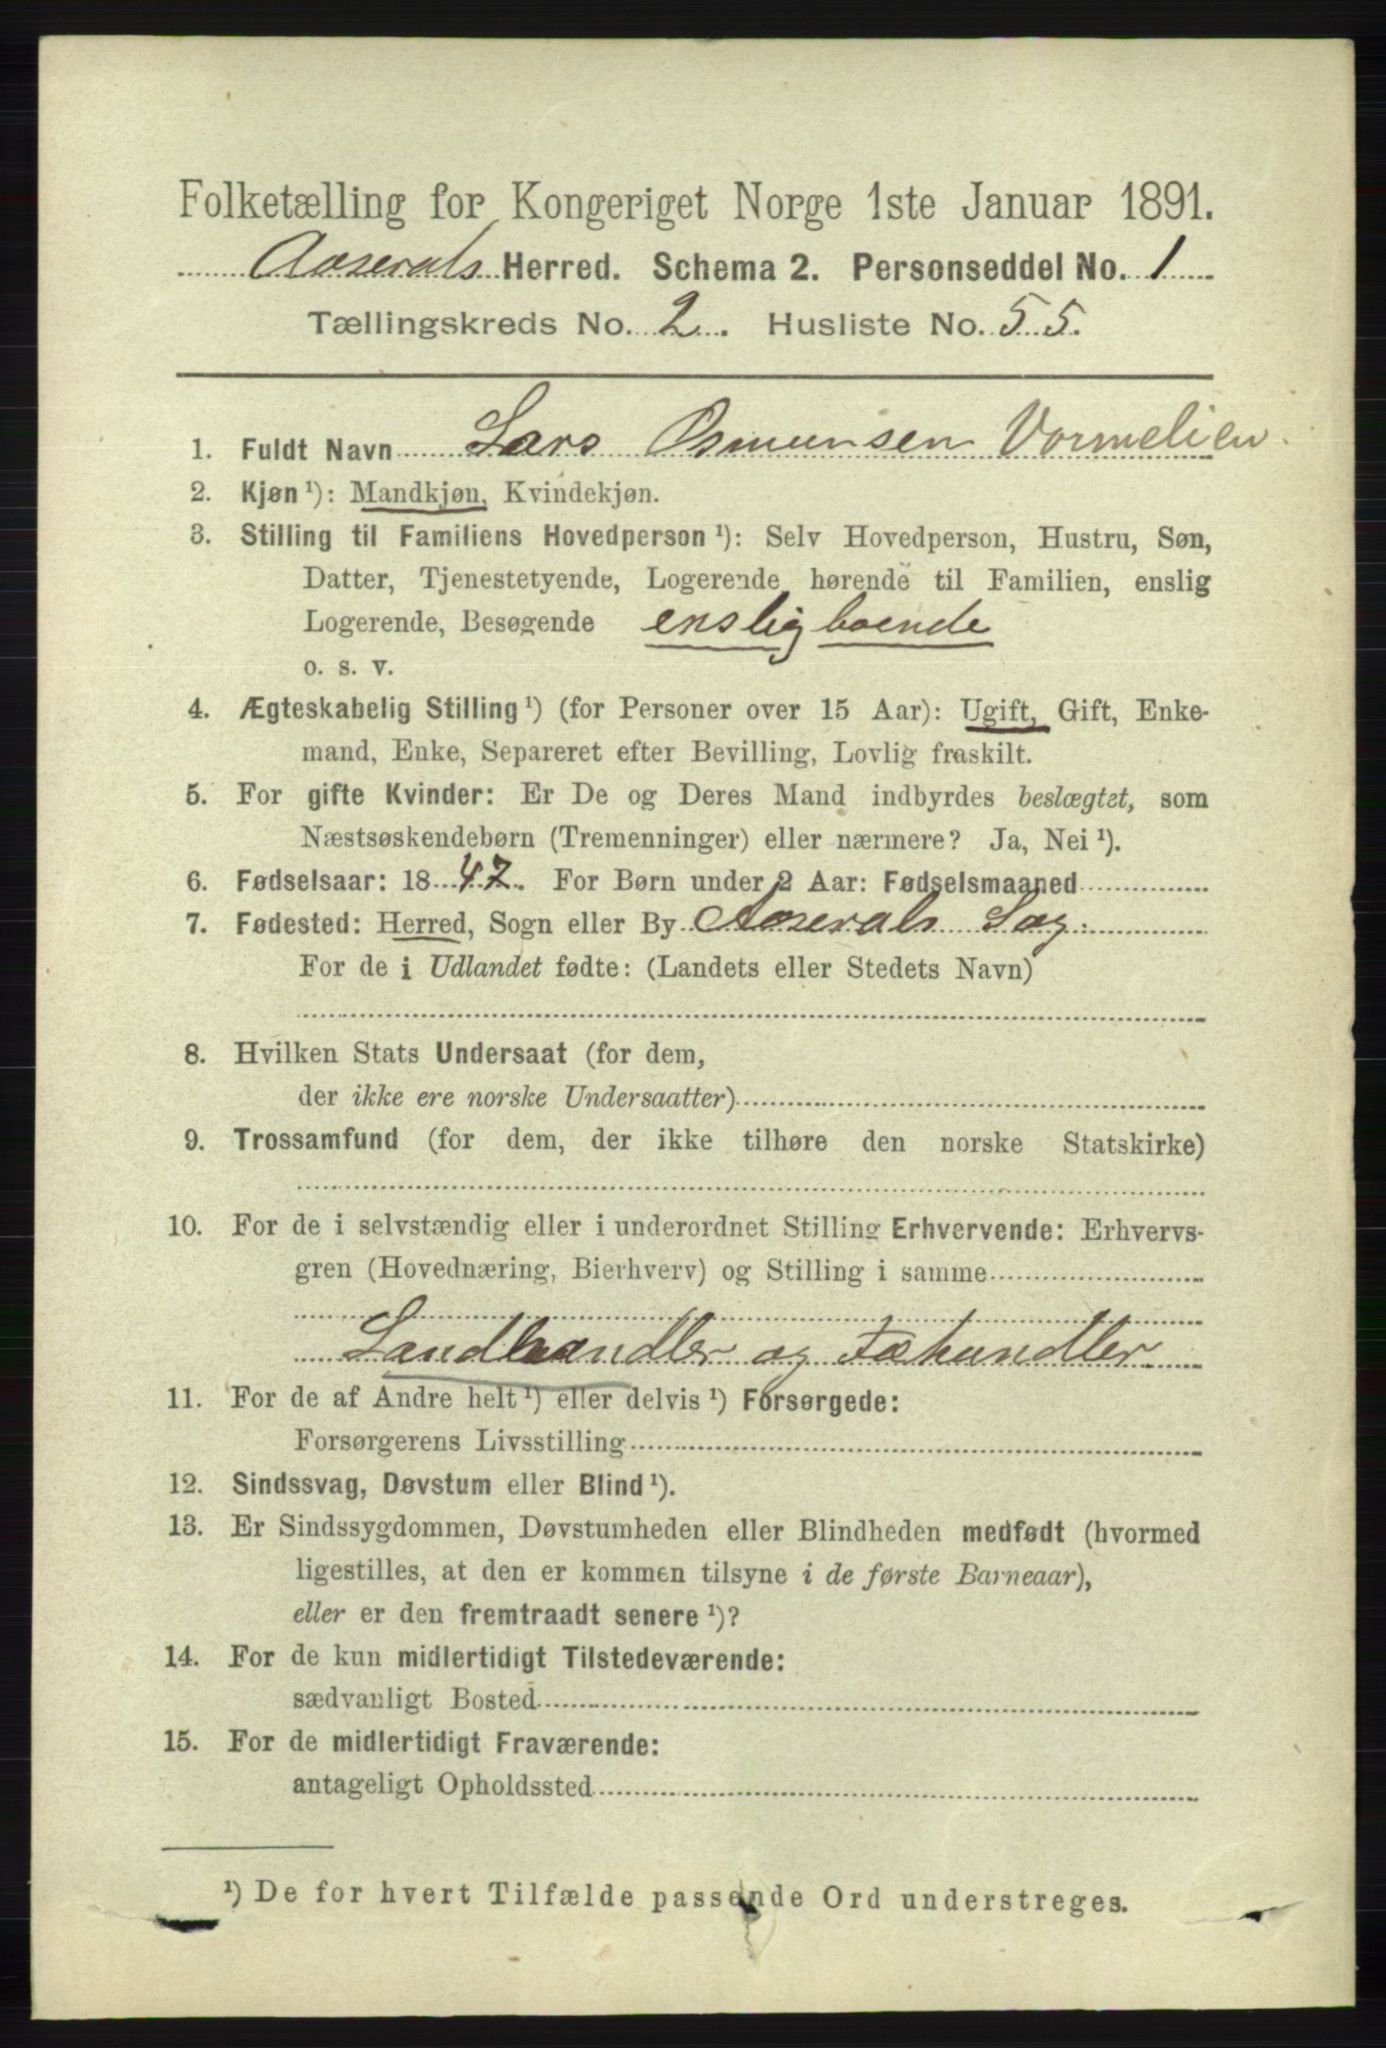 Folketælling for Kongeriget Norge 1ste Januar 1891.
Aaserals Herred. Schema 2. Personseddel No. 1
Tællingskreds No. 2. Husliste No. 55.
1. Fuldt Navn Lars Osmunsen Vormelien
2. Kjøn ¹): Mandkjøn, Kvindekjøn.
3. Stilling til Familiens Hovedperson ¹): Selv Hovedperson, Hustru, Søn,
Datter, Tjenestetyende, Logerende hørende til Familien, enslig
Logerende, Besøgende enslig boende
o. s. v.
4. Ægteskabelig Stilling ¹) (for Personer over 15 Aar): Ugift, Gift, Enke-
mand, Enke, Separeret efter Bevilling, Lovlig fraskilt.
5. For gifte Kvinder: Er De og Deres Mand indbyrdes beslægtet, som
Næstsøskendebørn (Tremenninger) eller nærmere? Ja, Nei ¹).
6. Fødselsaar: 1847. For Børn under 2 Aar: Fødselsmaaned
7. Fødested: Herred, Sogn eller By Aaserals Sog.
For de i Udlandet fødte: (Landets eller Stedets Navn)
8. Hvilken Stats Undersaat (for dem,
der ikke ere norske Undersaatter)
9. Trossamfund (for dem, der ikke tilhøre den norske Statskirke)
10. For de i selvstændig eller i underordnet Stilling Erhvervende: Erhvervs-
gren (Hovednæring, Bierhverv) og Stilling i samme
Landhandler og Fæhandler.
11. For de af Andre helt ¹) eller delvis ¹) Forsørgede:
Forsørgerens Livsstilling
12. Sindssvag, Døvstum eller Blind ¹).
13. Er Sindssygdommen, Døvstumheden eller Blindheden medfødt (hvormed
ligestilles, at den er kommen tilsyne i de første Barneaar),
eller er den fremtraadt senere ¹)?
14. For de kun midlertidigt Tilstedeværende:
sædvanligt Bosted
15. For de midlertidigt Fraværende:
antageligt Opholdssted
¹) De for hvert Tilfælde passende Ord understreges.